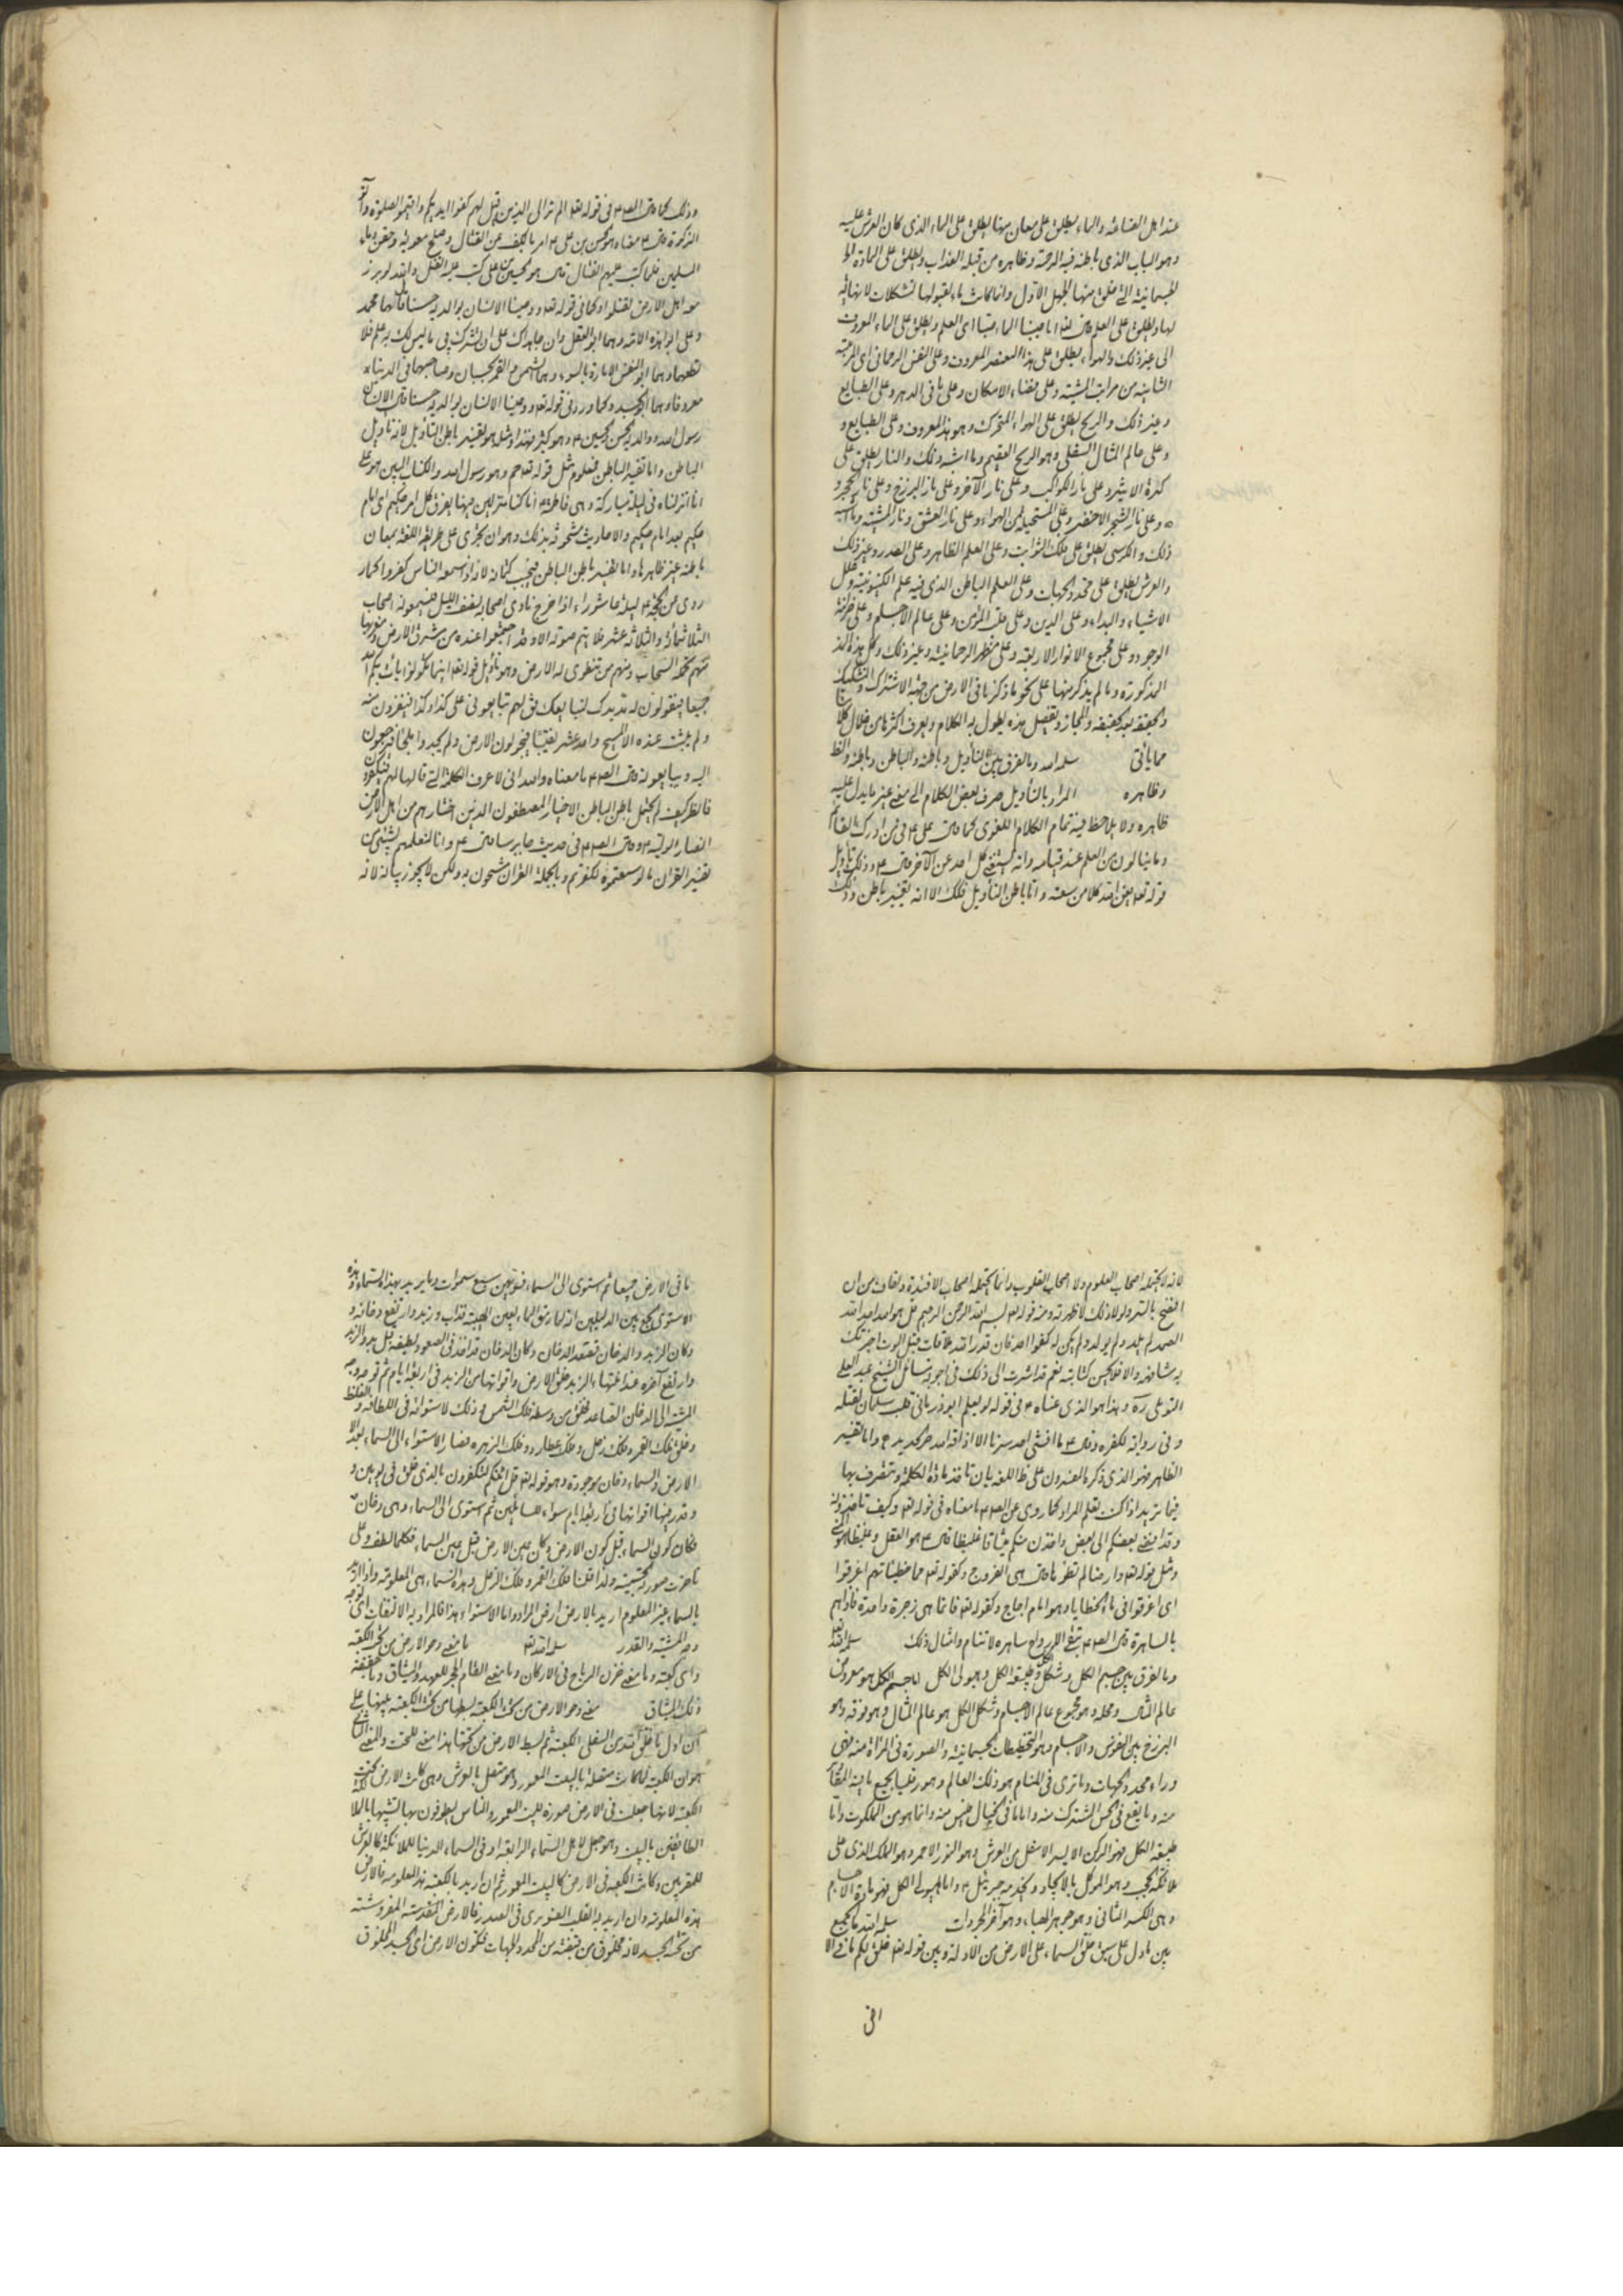 عند اهل الصناعة والماء يطلق على معان منها يطلق على الماء الذي كان العرش عليه
وهو الباب الذي باطنه فيه الرحمة وظاهره من قبله العذاب ويطلق على المادة
الجسمانية التي خلق منها الجهل الاول وانما كانت ماء لقبولها تشكلات لا نهاية
لها ويطلق على العلم انا صببنا الماء صبا اي العلم ويطلق على الماء المعروف
الى غير ذلك والهواء يطلق على هذا العنصر المعروف وعلى النفس الرحماني اي المرتبة
الثانية من مراتب المشية وعلى فضاء الامكان وعلى ما في الدهر وعلى الطبايع
وغير ذلك والريح يطلق على الهواء المتحرك وهو هذا المعروف وعلى الطبايع و
وعلى عالم المثال السفلي وهو الريح العقيم وما اشبه ذلك والنار يطلق على
كرة الاثير وعلى نار الكواكب وعلى نار الآخرة وعلى نار البرزخ وعلى نار الحجر و
وعلى نار الشجر الاخضر وعلى المستحيلة من الهواء وعلى نار العشق ونار المشية وما اشبه
ذلك والكرسي يطلق على فلك الثوابت وعلى العلم الظاهر وعلى الصدر وغير ذلك
والعرش يطلق على محدد الجهات وعلى العلم الباطن الذي فيه علم الكيفوفية وعلل
الاشياء والبداء وعلى الدين وعلى قلب المؤمن وعلى عالم الاجسام وعلى خزانة
الوجود وعلى مجموع الانوار الاربعة وعلى مظهر الرحمانية وغير ذلك وكل هذه
المذكورة وما لم يذكر منها على نحو ما ذكرنا في الارض من جهة الاشتراك والتشكيك
والحقيقة بعد الحقيقة والمجاز وتفصيل هذه يطول به الكلام ويعرف اكثرها من خلال
مما ياتي سلمه الله وما الفرق بين التأويل وباطنه والباطن وباطنه والظاهر
وظاهره المراد بالتأويل صرف بعض الكلام الى معنى غير ما يدل عليه
ظاهره ولا يلاحظ فيه تمام الكلام اللغوي كما قال علي ع فمن ادرك القائم
وما ينالون من العلم عند قيامه وانه ليستغني كل احد عن الآخر قال ع وذلك تأويل
قوله تعالى يغن الله كلا من سعته واما باطن التأويل فكذلك الا انه تفسير باطن وذلك
وذلك كما قال الصادق ع في قوله تعالى الم تر الى الذين قيل لهم كفوا ايديكم واقيموا الصلوة وآتوا
الزكوة قال ع معناه وهو الحسن بن علي ع امر بالكف عن القتال وصلح معوية وحقن دماء
المسلمين فلما كتب عليهم القتال قال هو الحسين بن علي كتب عليه القتل والله لو برز
معه اهل الارض لقتلوا وكما في قوله تعالى ووصينا الانسان بوالديه حسنا قال هما محمد
وعلي ابوا هذه الامة وهما ابوا العقل وان جاهداك على ان تشرك بي ما ليس لك به علم فلا
تطعهما وهما ابوا النفس الامارة بالسوء وهما الشمس والقمر بحسبان وصاحبهما في الدنيا
معروفا وهما ابوا الجسد وكما ورد في قوله تعالى ووصينا الانسان بوالديه حسنا قال الانسان
رسول الله ووالديه الحسن والحسين ع وهو كثير فهذا ومثله هو تفسير باطن التأويل لانه تأويل
الباطن واما تفسير الباطن فمعلوم مثل قوله تعالى حم وهو رسول الله والكتاب المبين هو علي
انا انزلناه في ليلة مباركة وهي فاطمة ع انا كنا منزلين فيها يفرق كل امر حكيم اي امام
حكيم بعد امام حكيم والاحاديث مشحونة بذلك وهو ان يجرى على طريقة اللغة بمعان
باطنة غير ظاهرها واما تفسير باطن الباطن فيجب كتمانه لانه اذا سمعه الناس كفروا كما
روي من الحجة ع ليلة عاشوراء اذا خرج نادى اصحابه نصف الليل فيسمعونه اصحاب
الثلاثمائة والثلاثة عشر فلا يتم صوته الا وقد اجتمعوا عنده من مشرق الارض ومغربها
منهم تحمله السحاب ومنهم من تنطوي له الارض وهو تأويل قوله تعالى اينما تكونوا يأت بكم الله
جميعا فيقولون له مد يدك لنبايعك فيقول لهم تبايعوني على كذا وكذا فينفرون منه
ولم يلبث عنده الا المسيح واحد عشر نقيبا فيجولون الارض ولم يجدوا ملجأ فيرجعون
اليه ويبايعونه قال الصادق ع ما معناه والله اني لاعرف الكلمة التي قالها لهم فيكفرون
فانظر كيف لم يحتمل باطن الباطن الاخيار المصطفون الذين اختارهم من اهل الارض
انصار الولية وقال الصادق ع في حديث جابر سامي ع وانا لنعلمهم بشيء من
تفسير القرآن ما لو سمعتموه لكفرتم وبالجملة القرآن مشحون به ولكن لا يجوز بيانه لانه
لانه لا يحتمله اصحاب العلوم ولا اصحاب القلوب وانما يحتمله اصحاب الافئدة واخاف من ان
افضح بالستر ولولا ذلك لاظهرته ومنه قوله تعالى بسم الله الرحمن الرحيم قل هو الله احد الله
الصمد لم يلد ولم يولد ولم يكن له كفوا احد فان قدر الله ملاقات قبل الموت اخبرتك
به مشافهة والا فلا يحسن كتابته نعم قد اشرت الى ذلك في اجوبة مسائل الشيخ عبد علي
التوبلي ره وهذا هو الذي عناه ع في قوله لو يعلم ابوذر ما في قلب سلمان لقتله
وفي رواية لكفره وقال ع ما افشى احد سرنا الا اذاقه الله حر الحديد ع واما تفسير
الظاهر فهو الذي ذكره المفسرون على ظاهر اللغة بان تاخذ مادة الكلمة وتتصرف بها
فيما تريد اذا كنت تعلم المراد كما روي عن الصادق ع ما معناه في قوله تعالى وكيف تاخذونه
وقد افضى بعضكم الى بعض واخذن منكم ميثاقا غليظا قال ع هو العقد وغليظا هو
ومثل قوله تعالى وارضا لم تطؤها قال هي الفروج وكقوله تعالى مما خطيئاتهم اغرقوا
اي اغرقوا في ماء الخطايا وهو ماء اجاج وكقوله تعالى فانما هي زجرة واحدة فاذا هم
بالساهرة قال الصادق ع تبقى الارواح ساهرة لا تنام وامثال ذلك سلمه الله تعالى
وما الفرق بين جسم الكل وشكل الكل وطبيعة الكل وهيولى الكل اما جسم الكل هو معروف
عالم المثال ومحله وهو مجموع عالم الاجسام وشكل الكل هو عالم المثال وهو فوقه وهو
البرزخ بين النفوس والاجسام وهو التخطيطات الجسمانية والصورة في المرآة منه فهي
وراء محدد الجهات وما ترى في المنام هو ذلك العالم وهو رقليا بجميع ما فيه
منه وما يقع في الحس المشترك منه واما ما في الخيال فليس منه وانما هو من الملكوت واما
طبيعة الكل فهو الركن الايسر الاسفل من العرش وهو النور الاحمر وهو الملك الذي على
ملائكة الحجب وهو الموكل بالايجاد ويخدمه جبرئيل ع واما هيولى الكل فهو مادة الاجسام
وهي الكسر الثاني وهو جوهر الهباء وهو آخر المجردات سلمه الله ما الجمع
بين ما دل على سبق خلق السماء على الارض من الادلة وبين قوله تعالى خلق لكم ما في الا
افى
ما في الارض جميعا ثم استوى الى السماء فسويهن سبع سموات وما يريد بهذه السماء وهذه
الاستوى الجمع بين الدليلين انه لما رمق الماء بعين الهيبة فذاب وزبد وارتفع دخانه و
وكان الزبد والدخان فعقد الدخان وكان الدخان قد اخذ في الصعود لطيفه قبل بدو الزبد
وارتفع آخره عند انتهاء الزبد فخلق الارض واقواتها من الزبد في اربعة ايام ثم توجه وجه
المشية الى الدخان الصاعد فخلق من وسطه فلك الشمس وذلك لاستوائه في اللطافة والغلظ
وخلق فلك القمر وفلك زحل وفلك عطارد وفلك الزهرة فصار الاستواء الى السماء بعد
الارض والسماء دخان موجودة وهو قوله تعالى قل ائنكم لتكفرون بالذي خلق في يومين و
وقدر فيها اقواتها في اربعة ايام سواء للسائلين ثم استوى الى السماء وهي دخان
فكان كون السماء قبل كون الارض وكان عين الارض قبل عين السماء فكلما لطف وعلى
تاخرت صورته الحسية ولذا خلقنا فلك القمر وفلك الزحل وهذه السماء هي المعلومة واذا اريد
بالسماء غير المعلوم اريد بالارض ارض المراد واما الاستواء هذا فالمراد به الالتفات اي توجه
وجه المشية والقدر سلمه الله تعالى ما معنى دحو الارض من تحت الكعبة
واي كعبة وما معنى خزن الرياح في الاركان وما معنى القام الحجر للعهد والميثاق وما حقيقة
ذلك الميثاق معنى دحو الارض من تحت الكعبة بسطها من تحت الكعبة يعني
ان اول ما خلق الله من السفلى الكعبة ثم بسط الارض من تحتها هذا معنى للتحت والمعنى الثاني
هو ان الكعبة لما كانت متصلة بالبيت المعمور وهو متصل بالعرش وهي كانت الارض تحت
الكعبة لانها جعلت في الارض صورة للبيت المعمور والناس يطوفون بها تشبيها بالملائكة
الطائفين بالبيت وهو جعل لاهل السماء الرابعة او في السماء الدنيا للملائكة كالعرش
للمقربين وكانت الكعبة في الارض كالبيت المعمور ثم ان اريد بالكعبة هذه المعلومة فالارض
هذه المعلومة وان اريد به القلب الصنوبري في الصدر فالارض المقدسة المفروشة
من تحت الجسد لانه مخلوق من قبضة من المحدد الجهات فتكون الارض اي الجسد المخلوق